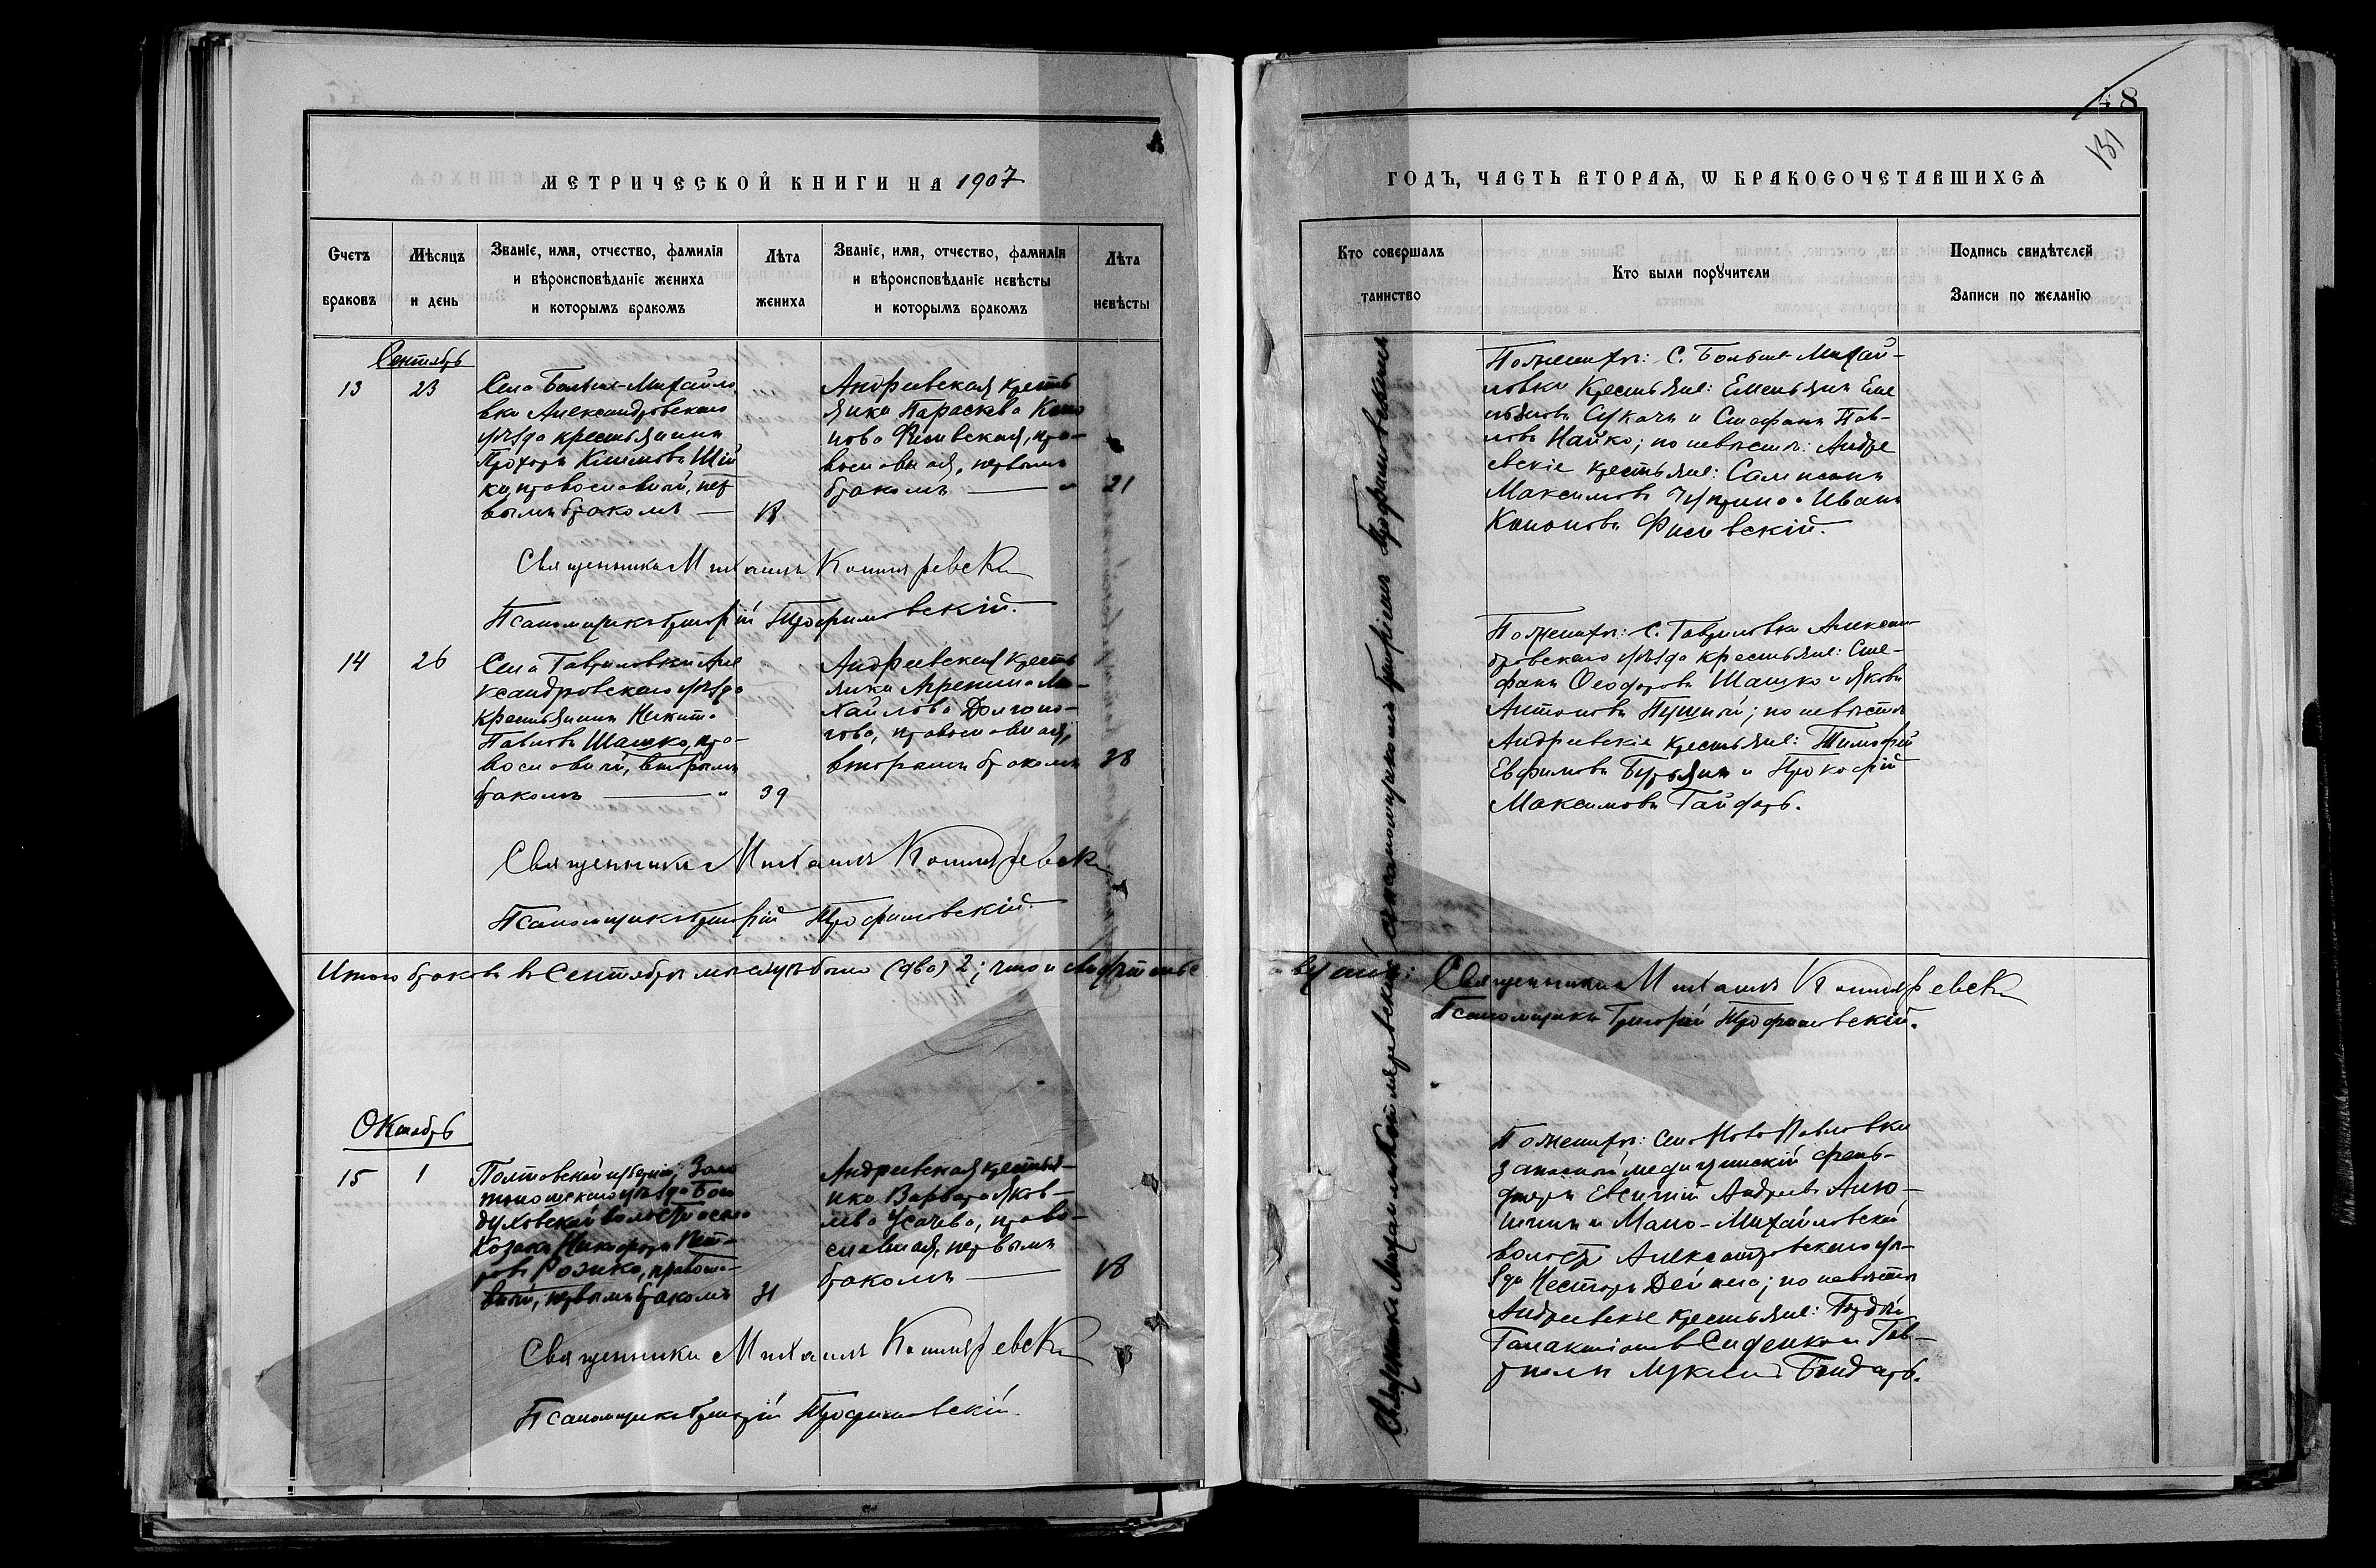 МЕТРИЧЕСКОЙ КНИГИ НА 1907
Счетъ браковъ
Мѣсяцъ и день
Званіе, имя, отчество, фамилія
и вѣроисповѣданіе жениха
и которымъ бракомъ
Лѣта жениха
Званіе, имя, отчество, фамилія
и вѣроисповѣданіе невѣсты
и которымъ бракомъ
Лѣта невѣсты
Сентябрь
13
23
Села Больше-Михайло
вки Александровскаго
уѣзда крестьянинъ
Прохоръ Климовъ
православный, пер
вымъ бракомъ
18
Андреевская кресть
янка Параскева Коно
нова Филевская, пра-
вославная, первымъ
бракомъ
21
Священникъ Михаилъ Котляревскій
Псаломщикъ Григорій Трофимовскій.
14
26
Села Гавриловки Але
ксандровскаго уѣзда
крестьянинъ Никита
Павловъ Шашко, пра-
вославный, вторымъ
бракомъ
39
Андреевская кресть
янка Агрепина Ми-
хайлова Долгопо-
лова, православная,
вторымъ бракомъ
38
Священникъ Михаилъ Котляревскій
Псаломщикъ Григорій Трофимовскій.
Итого браковъ въ Сентябрѣ мѣсяцѣ было (два) 2; что и свидѣтельс
Октябрь
15
1
Полтавской губерніи, Золо
тоношскаго уѣзда
волости
козакъ Никифоръ Пет-
ровъ православ-
ный, первымъ бракомъ
31
Андреевская крестья-
нка Варвара Яков-
лева Усачева, право-
славная, первымъ
бракомъ
18
Священникъ Михаилъ Котляревскій
Псаломщикъ Григорій Трофимовскій.
48
131
ГОДЪ, ЧАСТЬ ВТОРАЯ, Ѡ БРАКОСОЧЕТАВШИХСЯ
Кто совершалъ таинство
Кто были порꙋчители
Подпись свидѣтелей
Записи по желанію
Священникъ Михаилъ Котляревскій съ псаломщикомъ Григоріемъ Трофимовскимъ
По женихѣ: с. Больше-Михай-
ловки крестьяне: Емельянъ Еме
льяновъ Сукачъ и Стефанъ Пав-
ловъ Найко; по невѣстѣ: Андре
евскіе крестьяне: Сампсонъ
Максимовъ Чуприна и Иванъ
Кононовъ Филевскій.
По женихѣ: с. Гавриловки Алексан-
дровскаго уѣзда крестьяне: Сте-
фанъ Ѳеодоровъ Шашко и Яковъ
Антоновъ Пушной; по невѣстѣ
Андреевскіе крестьяне: Тимофей
Евфимовъ Бурьянъ и Прокофій
Максимовъ Гайдаръ.
вуемъ: Священникъ Михаилъ Котляревскій
Псаломщикъ Григорій Трофимовскій.
По женихѣ: села Ново Павловки
запасной медицинскій фель-
дшеръ Евгеній Андреевъ
и Мало-Михайловской
волости Александровскаго уѣ-
зда Несторъ Дейнега; по невѣстѣ
Андреевскіе крестьяне: Гордѣй
Галактіоновъ Сиденко и Гав-
риилъ Лукинъ Бондарь.